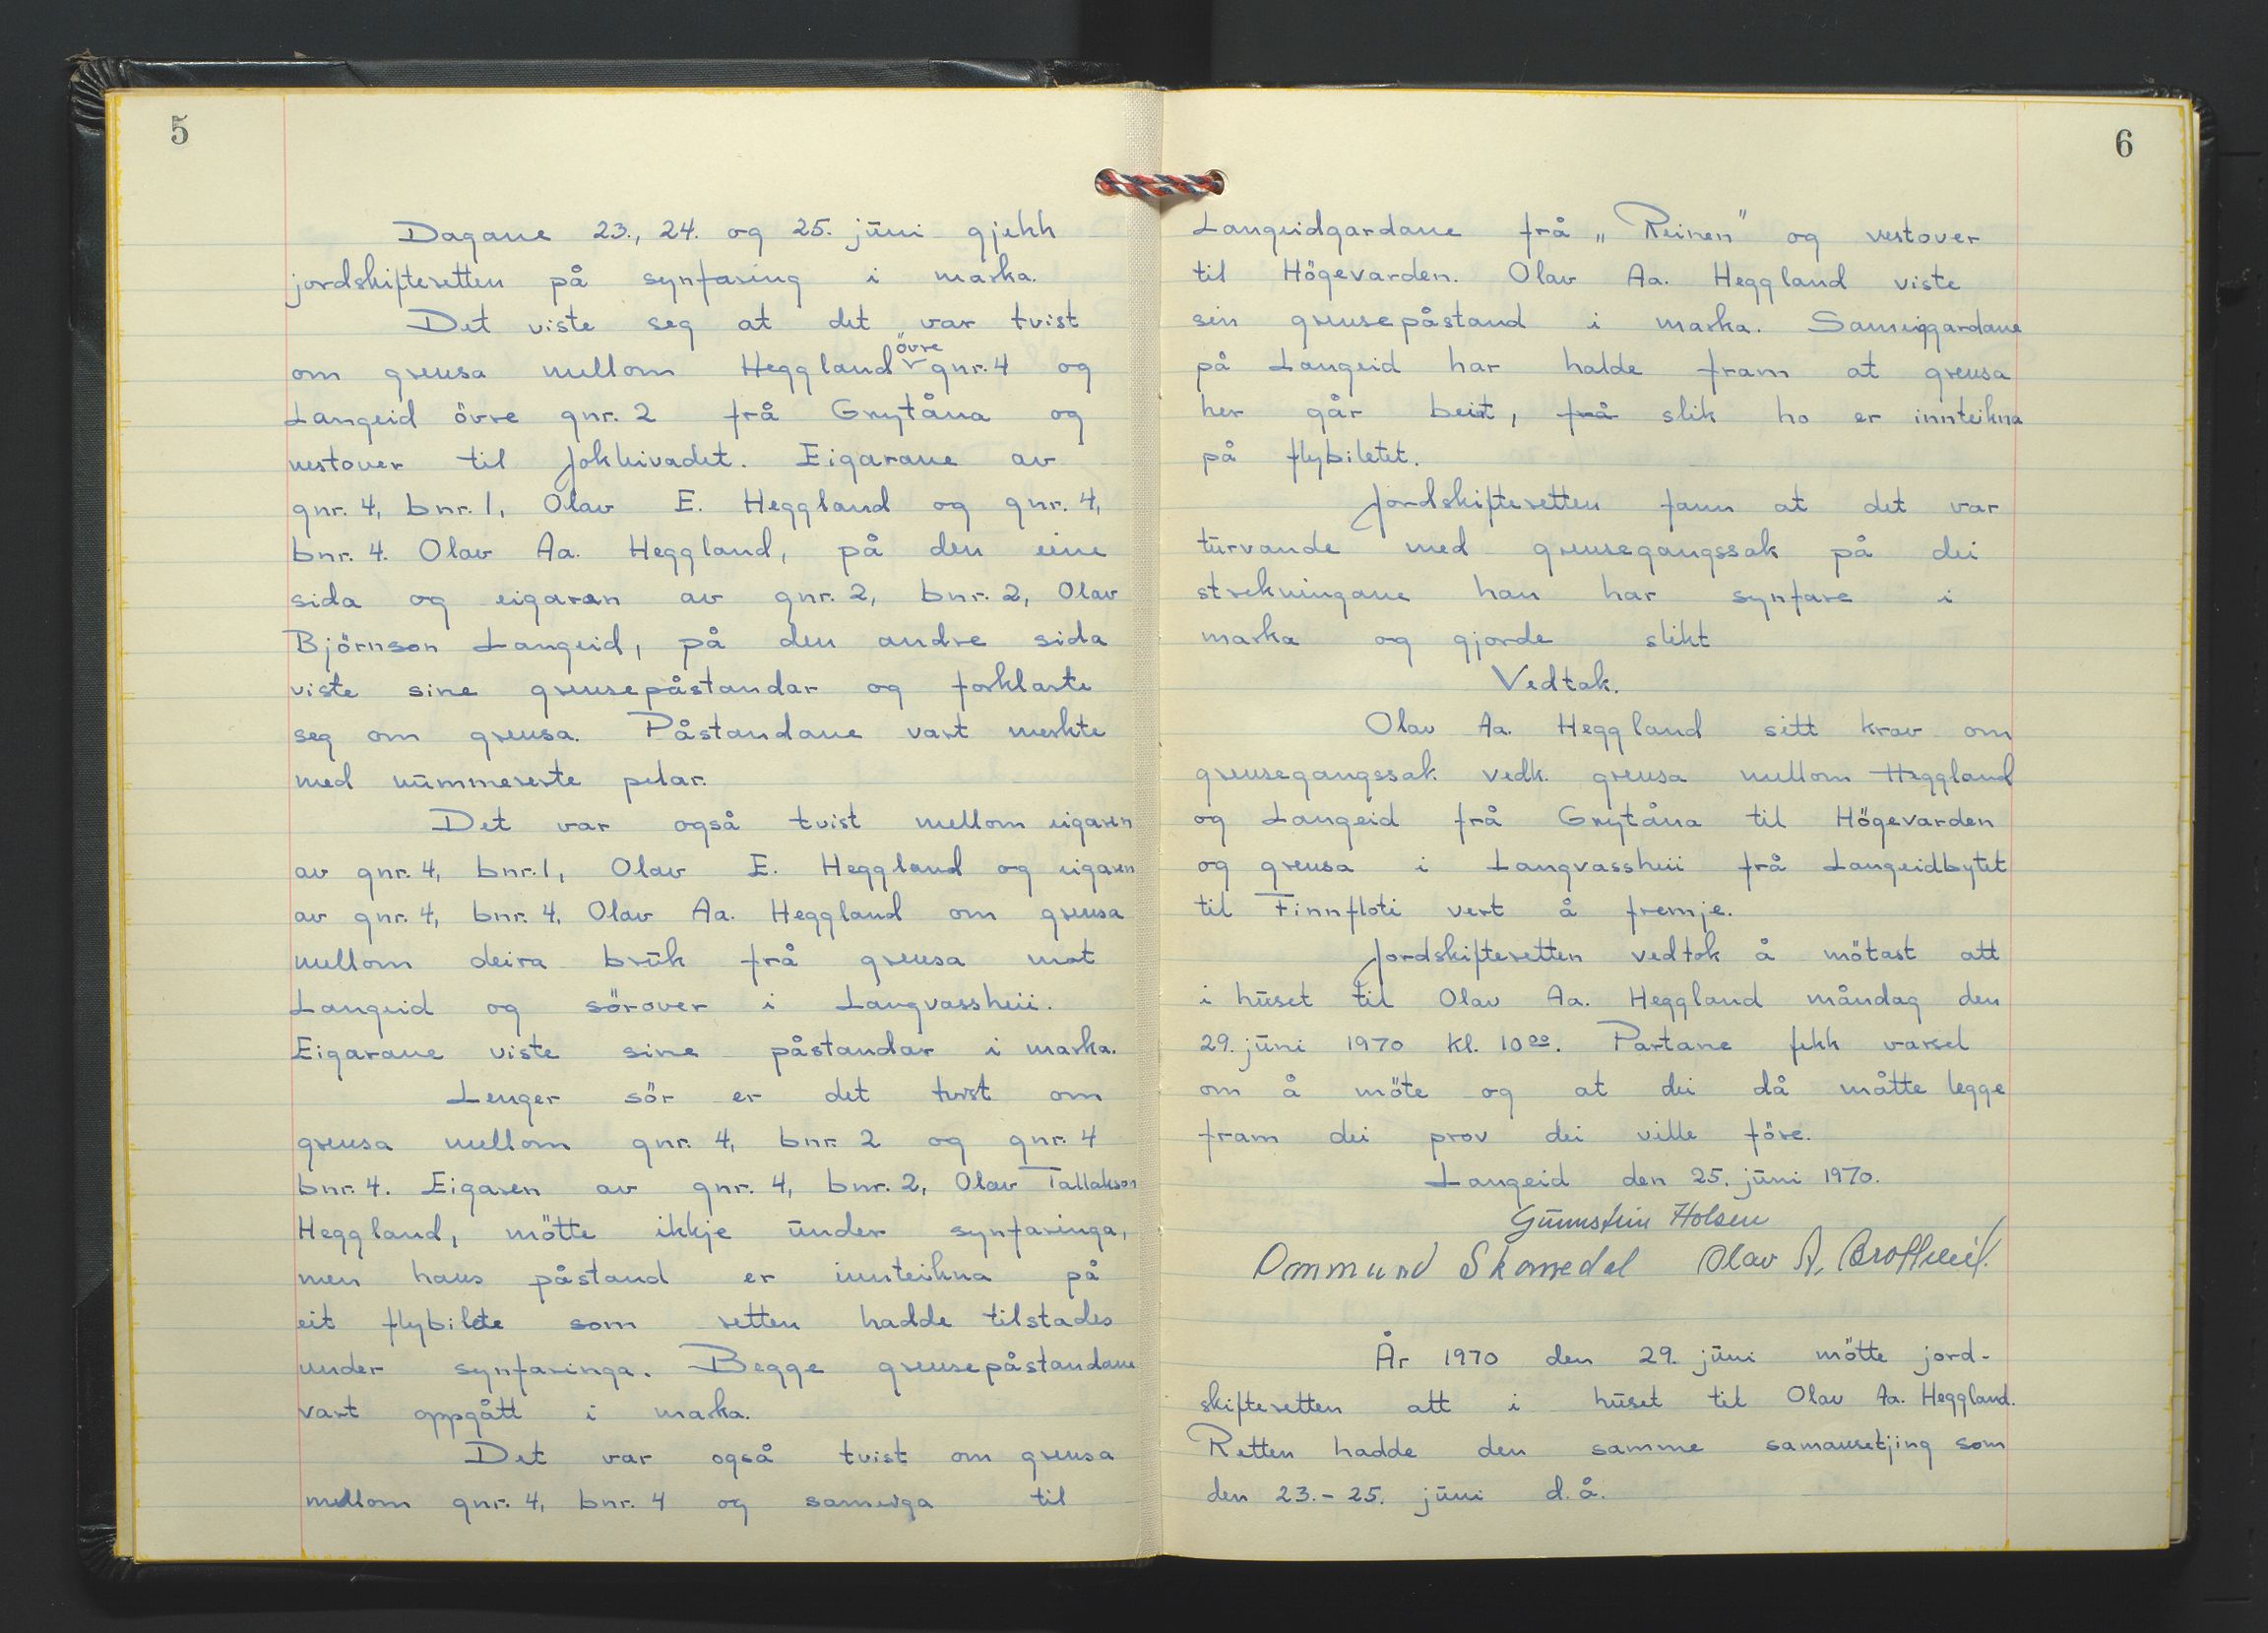 5
Dagane 23., 24. og 25. juni gjekk
jordskifteretten på synfaring i marka.
Det viste seg at det var tvist
om grensa mellom Heggland övre gnr. 4 og
Langeid övre gnr. 2 frå Grytåna og
vestover til Jokkivadet. Eigarane av
gnr. 4, bnr. 1, Olav E. Heggland og gnr. 4,
bnr. 4. Olav Aa. Heggland, på den eine
sida og eigaran av gnr. 2, bnr. 2, Olav
Björnson Langeid, på den andre sida
viste sine grensepåstandar og forklarte
seg om grensa. Påstandane vart merkte
med nummererte pelar.
Det var også tvist mellom eigaren
av gnr. 4, bnr. 1, Olav E. Heggland og eigaren
av gnr. 4, bnr. 4, Olav Aa. Heggland om grensa
mellom deira bruk frå grensa mot
Langeid og sörover i Langvassheii.
Eigarane viste sine påstandar i marka.
Lenger sör er det tvist om
grensa mellom gnr. 4, bnr. 2 og gnr. 4
bnr. 4. Eigaren av gnr. 4, bnr. 2, Olav Tallakson
Heggland, mötte ikkje under synfaringa,
men hans påstand er innteikna på
eit flybilete som retten hadde tilstades
under synfaringa. Begge grensepåstandane
vart oppgått i marka.
Det var også tvist om grensa
mellom gnr. 4, bnr. 4 og sameiga til
6
Langeidgardane frå „Reinen" og vestover
til Högevarden. Olav Aa. Heggland viste
sin grensepåstand i marka. Sameiggardane
på Langeid har halde fram at grensa
her går beint, frå slik ho er innteikna
på flybiletet.
Jordskifteretten fann at det var
turvande med grensegangssak på dei
strekningane han har synfare i
marka og gjorde slikt
Vedtak.
Olav Aa. Heggland sitt krav om
grensegangssak vedk. grensa mellom Heggland
og Langeid frå Grytåna til Högevarden
og grensa i Langvassheii frå Langeidbytet
til Finnfloti vert å fremje.
Jordskifteretten vedtok å mötast att
i huset til Olav Aa. Heggland måndag den
29. juni 1970 kl. 10 00. Partane fekk varsel
om å möte og at dei då måtte legge
fram dei prov dei ville före.
Langeid den 25. juni 1970.
Gunnstein Holen
Ommund Skomedal Olav A.
År 1970 den 29. juni mötte jord-
skifteretten att i huset til Olav Aa. Heggland.
Retten hadde den samme samansetjing som
den 23.- 25. juni d.å.